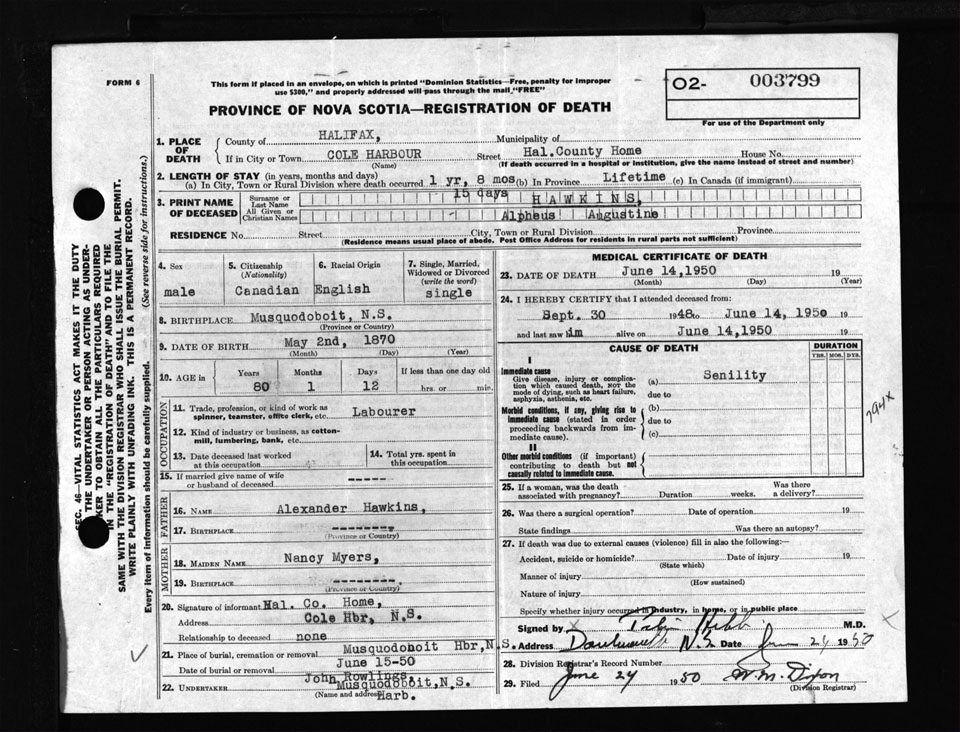 FORM 6
This form if placed in an envelope, on which is printed "Dominion Statistics—Free, penalty for improper
use $300," and properly addressed will pass through the mail "FREE"
O2- 003799
For use of the Department only
PROVINCE OF NOVA SCOTIA—REGISTRATION OF DEATH
1. PLACE OF DEATH
County of HALIFAX, Municipality of
If in City or Town COLE HARBOUR Street Hal.County Home House No.
(Name) (If death occurred in a hospital or institution, give the name instead of street and number)
2. LENGTH OF STAY (in years, months and days)
(a) In City, Town or Rural Division where death occurred 1 yr, 8 mos (b) In Province Lifetime (c) In Canada (if immigrant)
15 days
3. PRINT NAME OF DECEASED
Surname or Last Name HAWKINS,
All Given or Christian Names Alpheus Augustine
RESIDENCE No. Street City, Town or Rural Division Province
(Residence means usual place of abode. Post Office Address for residents in rural parts not sufficient)
4. Sex male
5. Citizenship (Nationality) Canadian
6. Racial Origin English
7. Single, Married, Widowed or Divorced (write the word) single
8. BIRTHPLACE Musquodoboit, N.S.
(Province or Country)
9. DATE OF BIRTH May 2nd, 1870
(Month) (Day) (Year)
10. AGE in Years Months Days If less than one day old
80 1 12 hrs. or min.
OCCUPATION
11. Trade, profession, or kind of work as spinner, teamster, office clerk, etc. Labourer
12. Kind of industry or business, as cotton-mill, lumbering, bank, etc.
13. Date deceased last worked at this occupation
14. Total yrs. spent in this occupation
15. If married give name of wife or husband of deceased -----
FATHER
16. NAME Alexander Hawkins,
17. BIRTHPLACE --------
(Province or Country)
MOTHER
18. MAIDEN NAME Nancy Myers,
19. BIRTHPLACE --------
(Province or Country)
20. Signature of informant Hal. Co. Home,
Address Cole Hbr, N.S.
Relationship to deceased none
21. Place of burial, cremation or removal Musquodoboit Hbr,N.S.
Date of burial or removal June 15-50
22. UNDERTAKER John Rowlings,
Musquodoboit,N.S.
(Name and address) Harb.
MEDICAL CERTIFICATE OF DEATH
23. DATE OF DEATH June 14,1950 19
(Month) (Day) (Year)
24. I HEREBY CERTIFY that I attended deceased from:
Sept. 30 1948 to June 14, 1950 19
and last saw him alive on June 14,1950 19
CAUSE OF DEATH
DURATION
YRS. MOS. DYS.
I
Immediate cause
Give disease, injury or complication which caused death, NOT the mode of dying, such as heart failure, asphyxia, asthenia, etc.
(a) Senility
due to
Morbid conditions, if any, giving rise to immediate cause (stated in order proceeding backwards from immediate cause).
(b)
due to
(c)
II
Other morbid conditions (if important) contributing to death but not causally related to immediate cause.
794x
25. If a woman, was the death associated with pregnancy? Duration weeks. Was there a delivery?
26. Was there a surgical operation? Date of operation 19
State findings Was there an autopsy?
27. If death was due to external causes (violence) fill in also the following:—
Accident, suicide or homicide? Date of injury 19
(State which)
Manner of injury
(How sustained)
Nature of injury
Specify whether injury occurred in industry, in home, or in public place
Signed by M.D.
Address N.S. Date 24 1950
28. Division Registrar's Record Number
29. Filed June 24 1950 W.M. Dixon
(Division Registrar)
SEC. 46—VITAL STATISTICS ACT MAKES IT THE DUTY
THE UNDERTAKER OR PERSON ACTING AS UNDER-
KER TO OBTAIN ALL THE PARTICULARS REQUIRED
IN THE "REGISTRATION OF DEATH" AND TO FILE THE
SAME WITH THE DIVISION REGISTRAR WHO SHALL ISSUE THE BURIAL PERMIT.
WRITE PLAINLY WITH UNFADING INK. THIS IS A PERMANENT RECORD.
Every item of information should be carefully supplied. (See reverse side for instructions.)